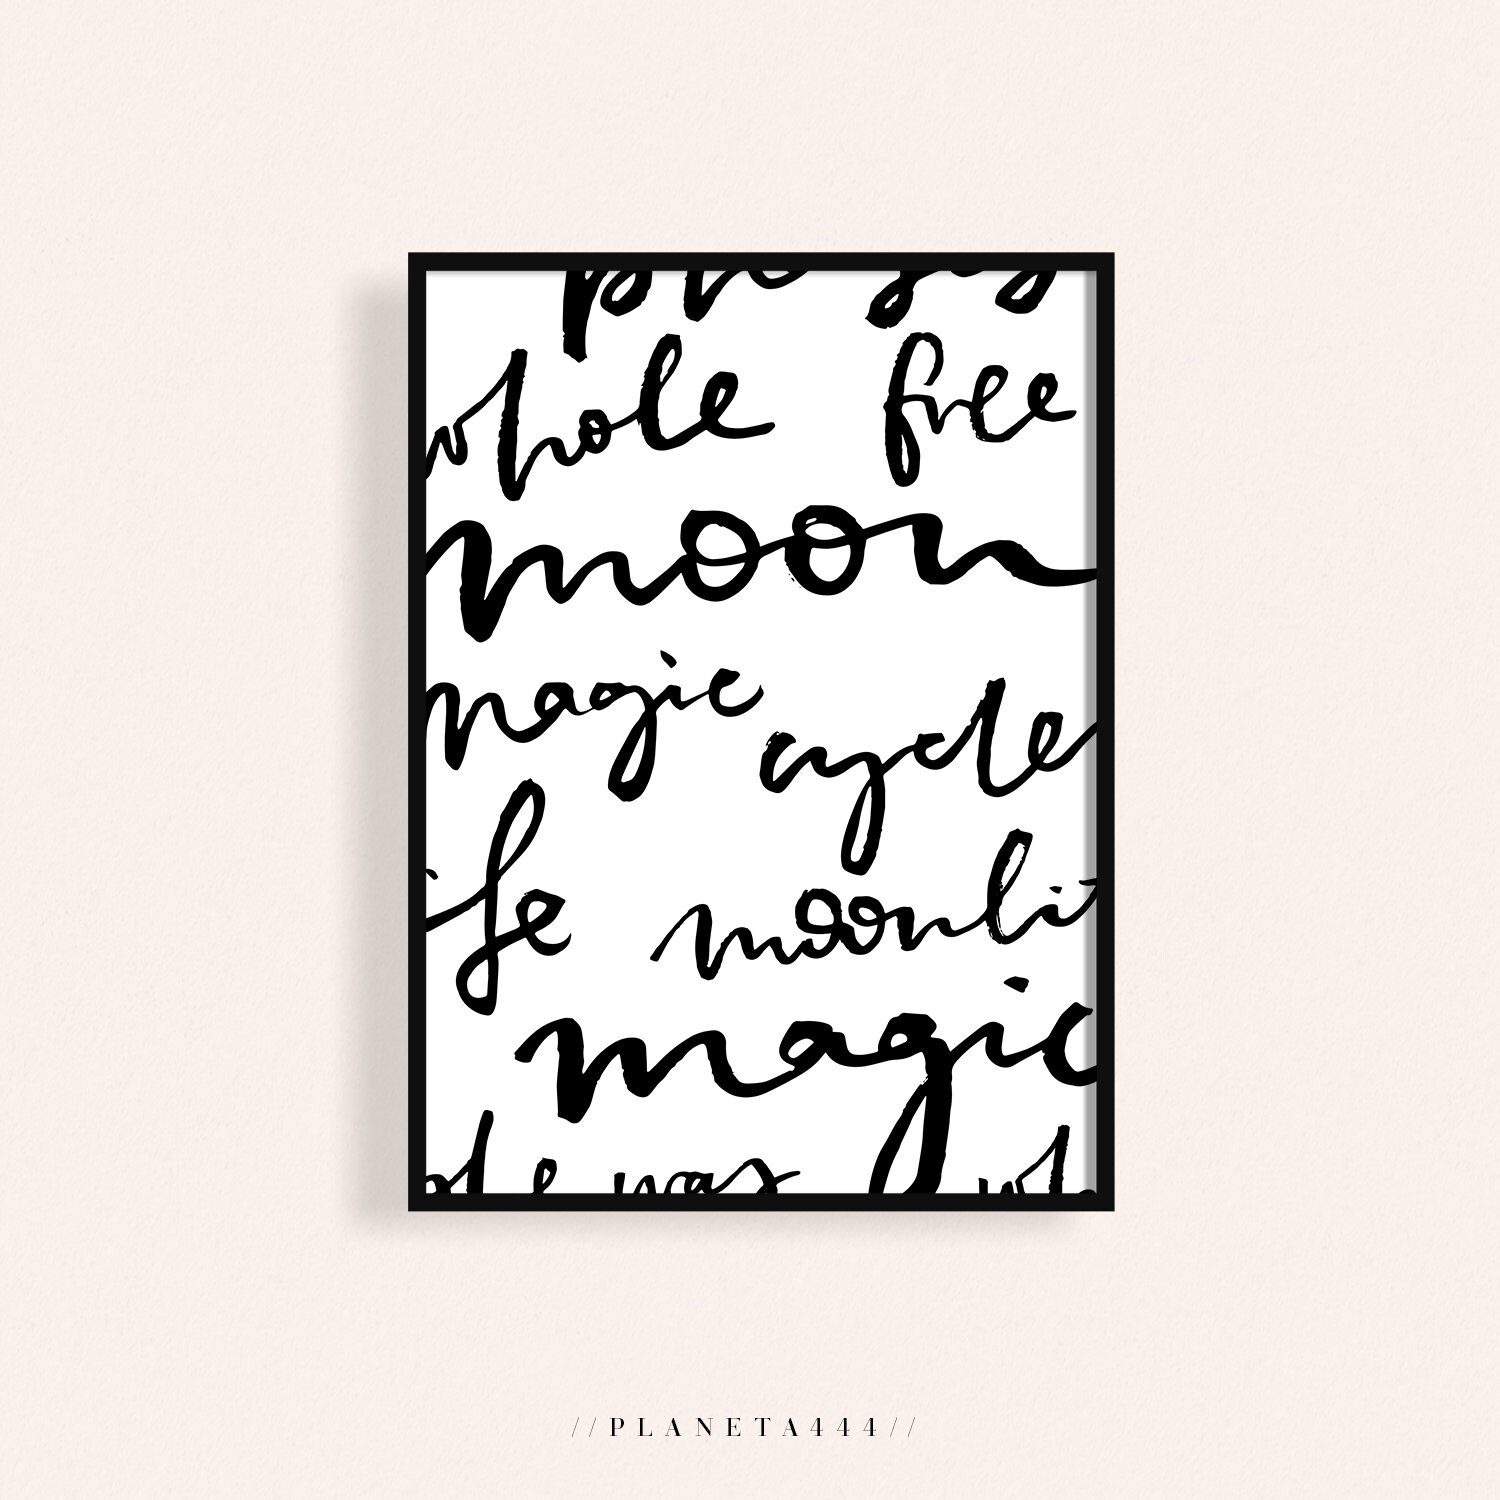 whole free
moon
magic cycle
ife moonlit
magic
ole was wh
//PLANETA444//